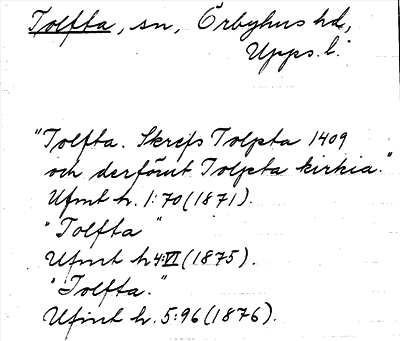 Tolfta, sn, Örbyhus hd,
Upps. l.
"Tolfta. Skrefs Tolpta 1409
och derförut Tolpta kirkia."
Ufmt h. 1:70 (1871).
"Tolfta"
Ufmt h 4:VI (1875).
"Tolfta."
Ufmt h. 5:96 (1876).